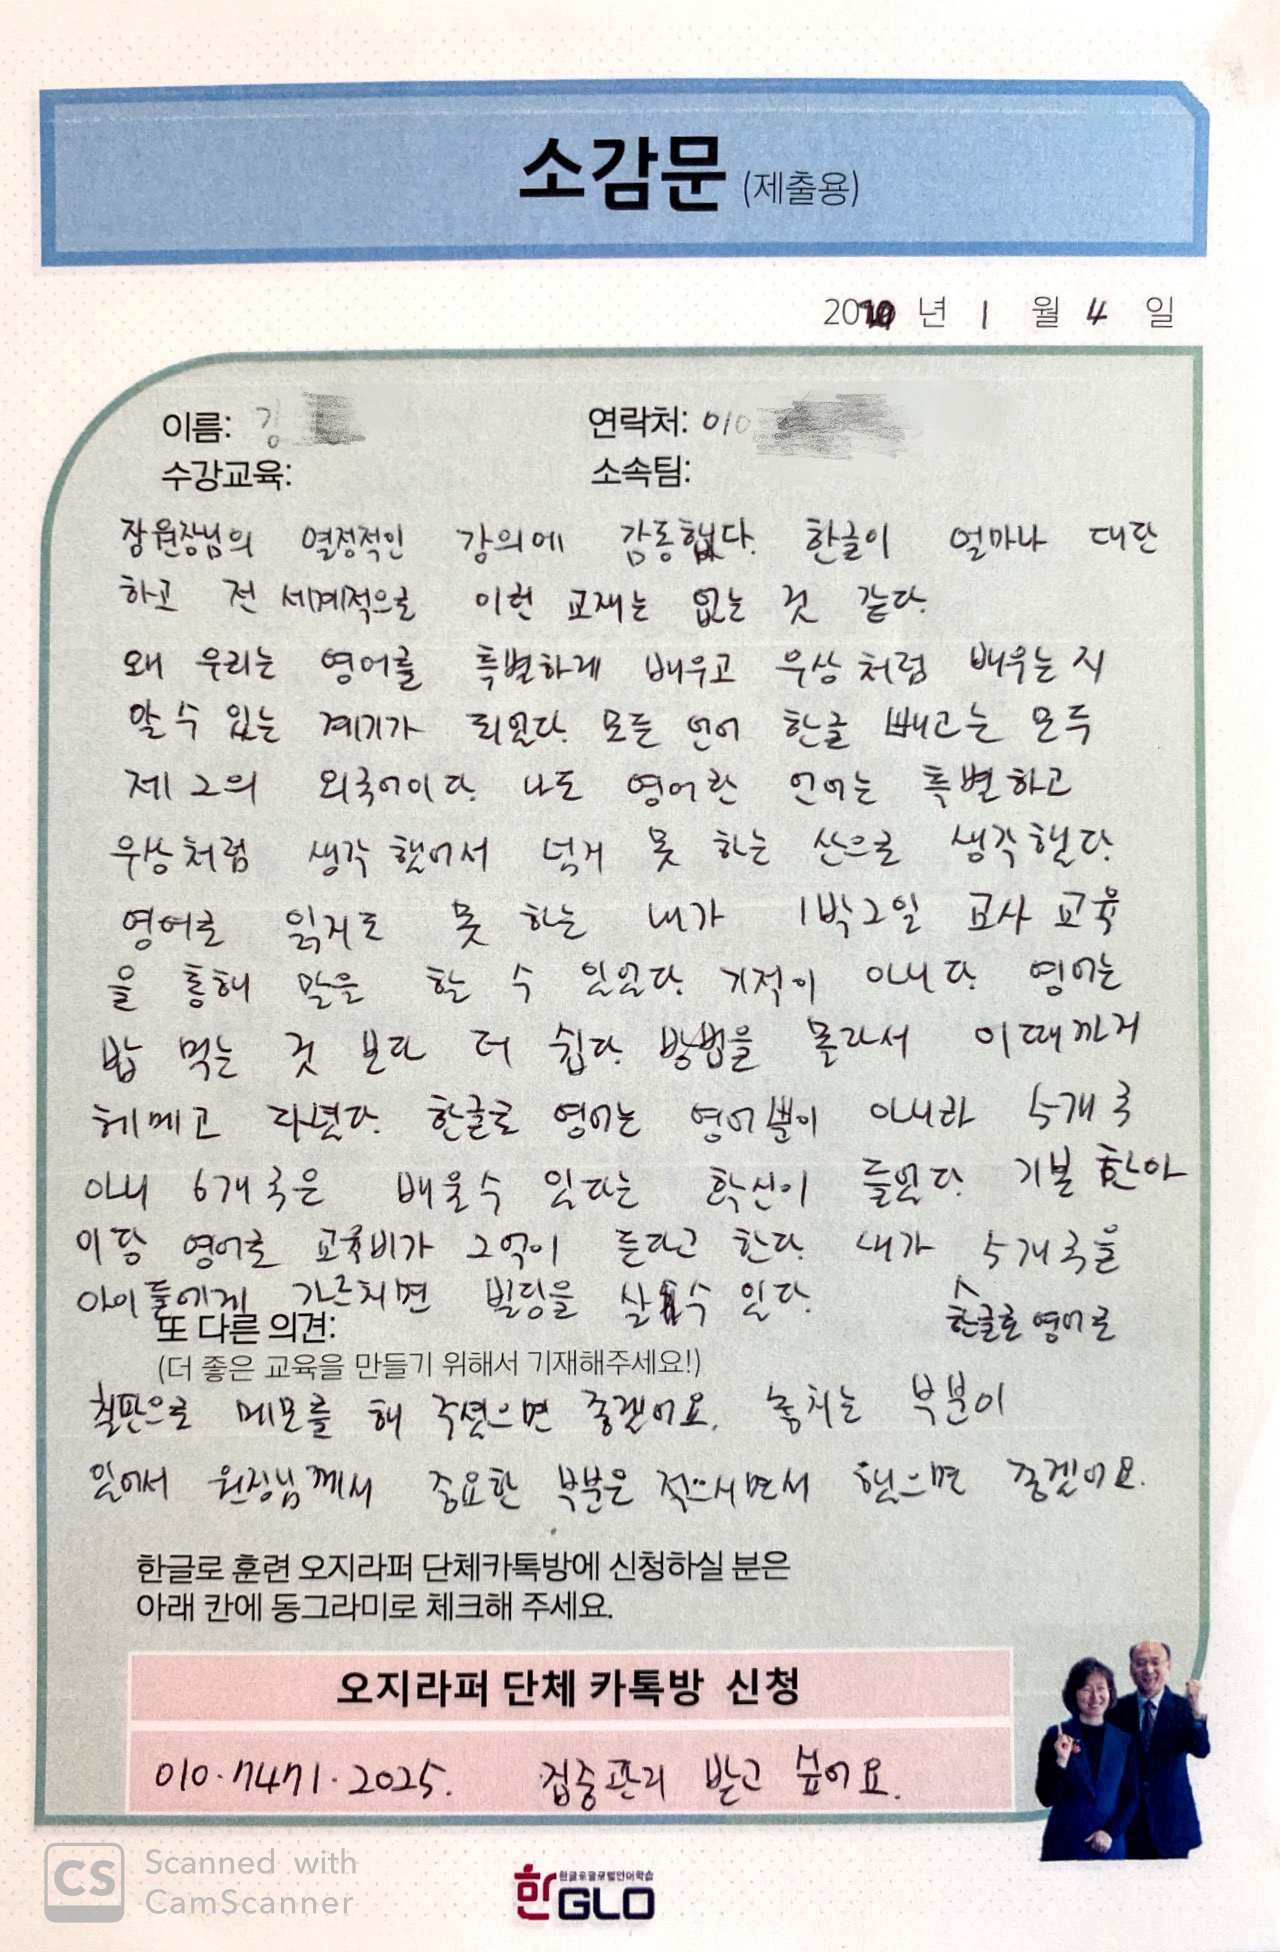 소감문 (제출용)
2020 년 1 월 4 일
이름: 강
연락처: 010
수강교육:
소속팀:
장원장님의 열정적인 강의에 감동했다. 한글이 얼마나 대단
하고 전 세계적으로 이런 교재는 없는 것 같다.
왜 우리는 영어를 특별하게 배우고 우상처럼 배우는 지
알 수 있는 계기가 되었다. 모든 언어 한글 빼고는 모두
제 2의 외국어이다. 나도 영어란 언어는 특별하고
우상처럼 생각했어서 넘게 못 하는 산으로 생각했다.
영어로 읽지도 못 하는 내가 1박2일 교사 교육
을 통해 말을 할 수 있었다. 기적이 아니다. 영어는
밥 먹는 것 보다 더 쉽다. 방법을 몰라서 이때까지
헤메고 다녔다. 한글로 영어는 영어뿐이 아니라 5개국
아니 6개국은 배울수 있다는 확신이 들었다. 기본 한아
이당 영어로 교육비가 2억이 든다고 한다. 내가 5개국을
아이들에게 가르치면 빌딩을 살 수 있다.
^ 한글로 영어로
또 다른 의견:
(더 좋은 교육을 만들기 위해서 기재해주세요!)
칠판으로 메모를 해 주셨으면 좋겠어요. 놓치는 부분이
있어서 원장님께서 중요한 부분은 적으시면서 했으면 좋겠어요.
한글로 훈련 오지라퍼 단체카톡방에 신청하실 분은
아래 칸에 동그라미로 체크해 주세요.
오지라퍼 단체 카톡방 신청
010.7471.2025. 집중관리 받고 싶어요.
CS Scanned with
CamScanner
한글로글로벌언어학습
한GLO